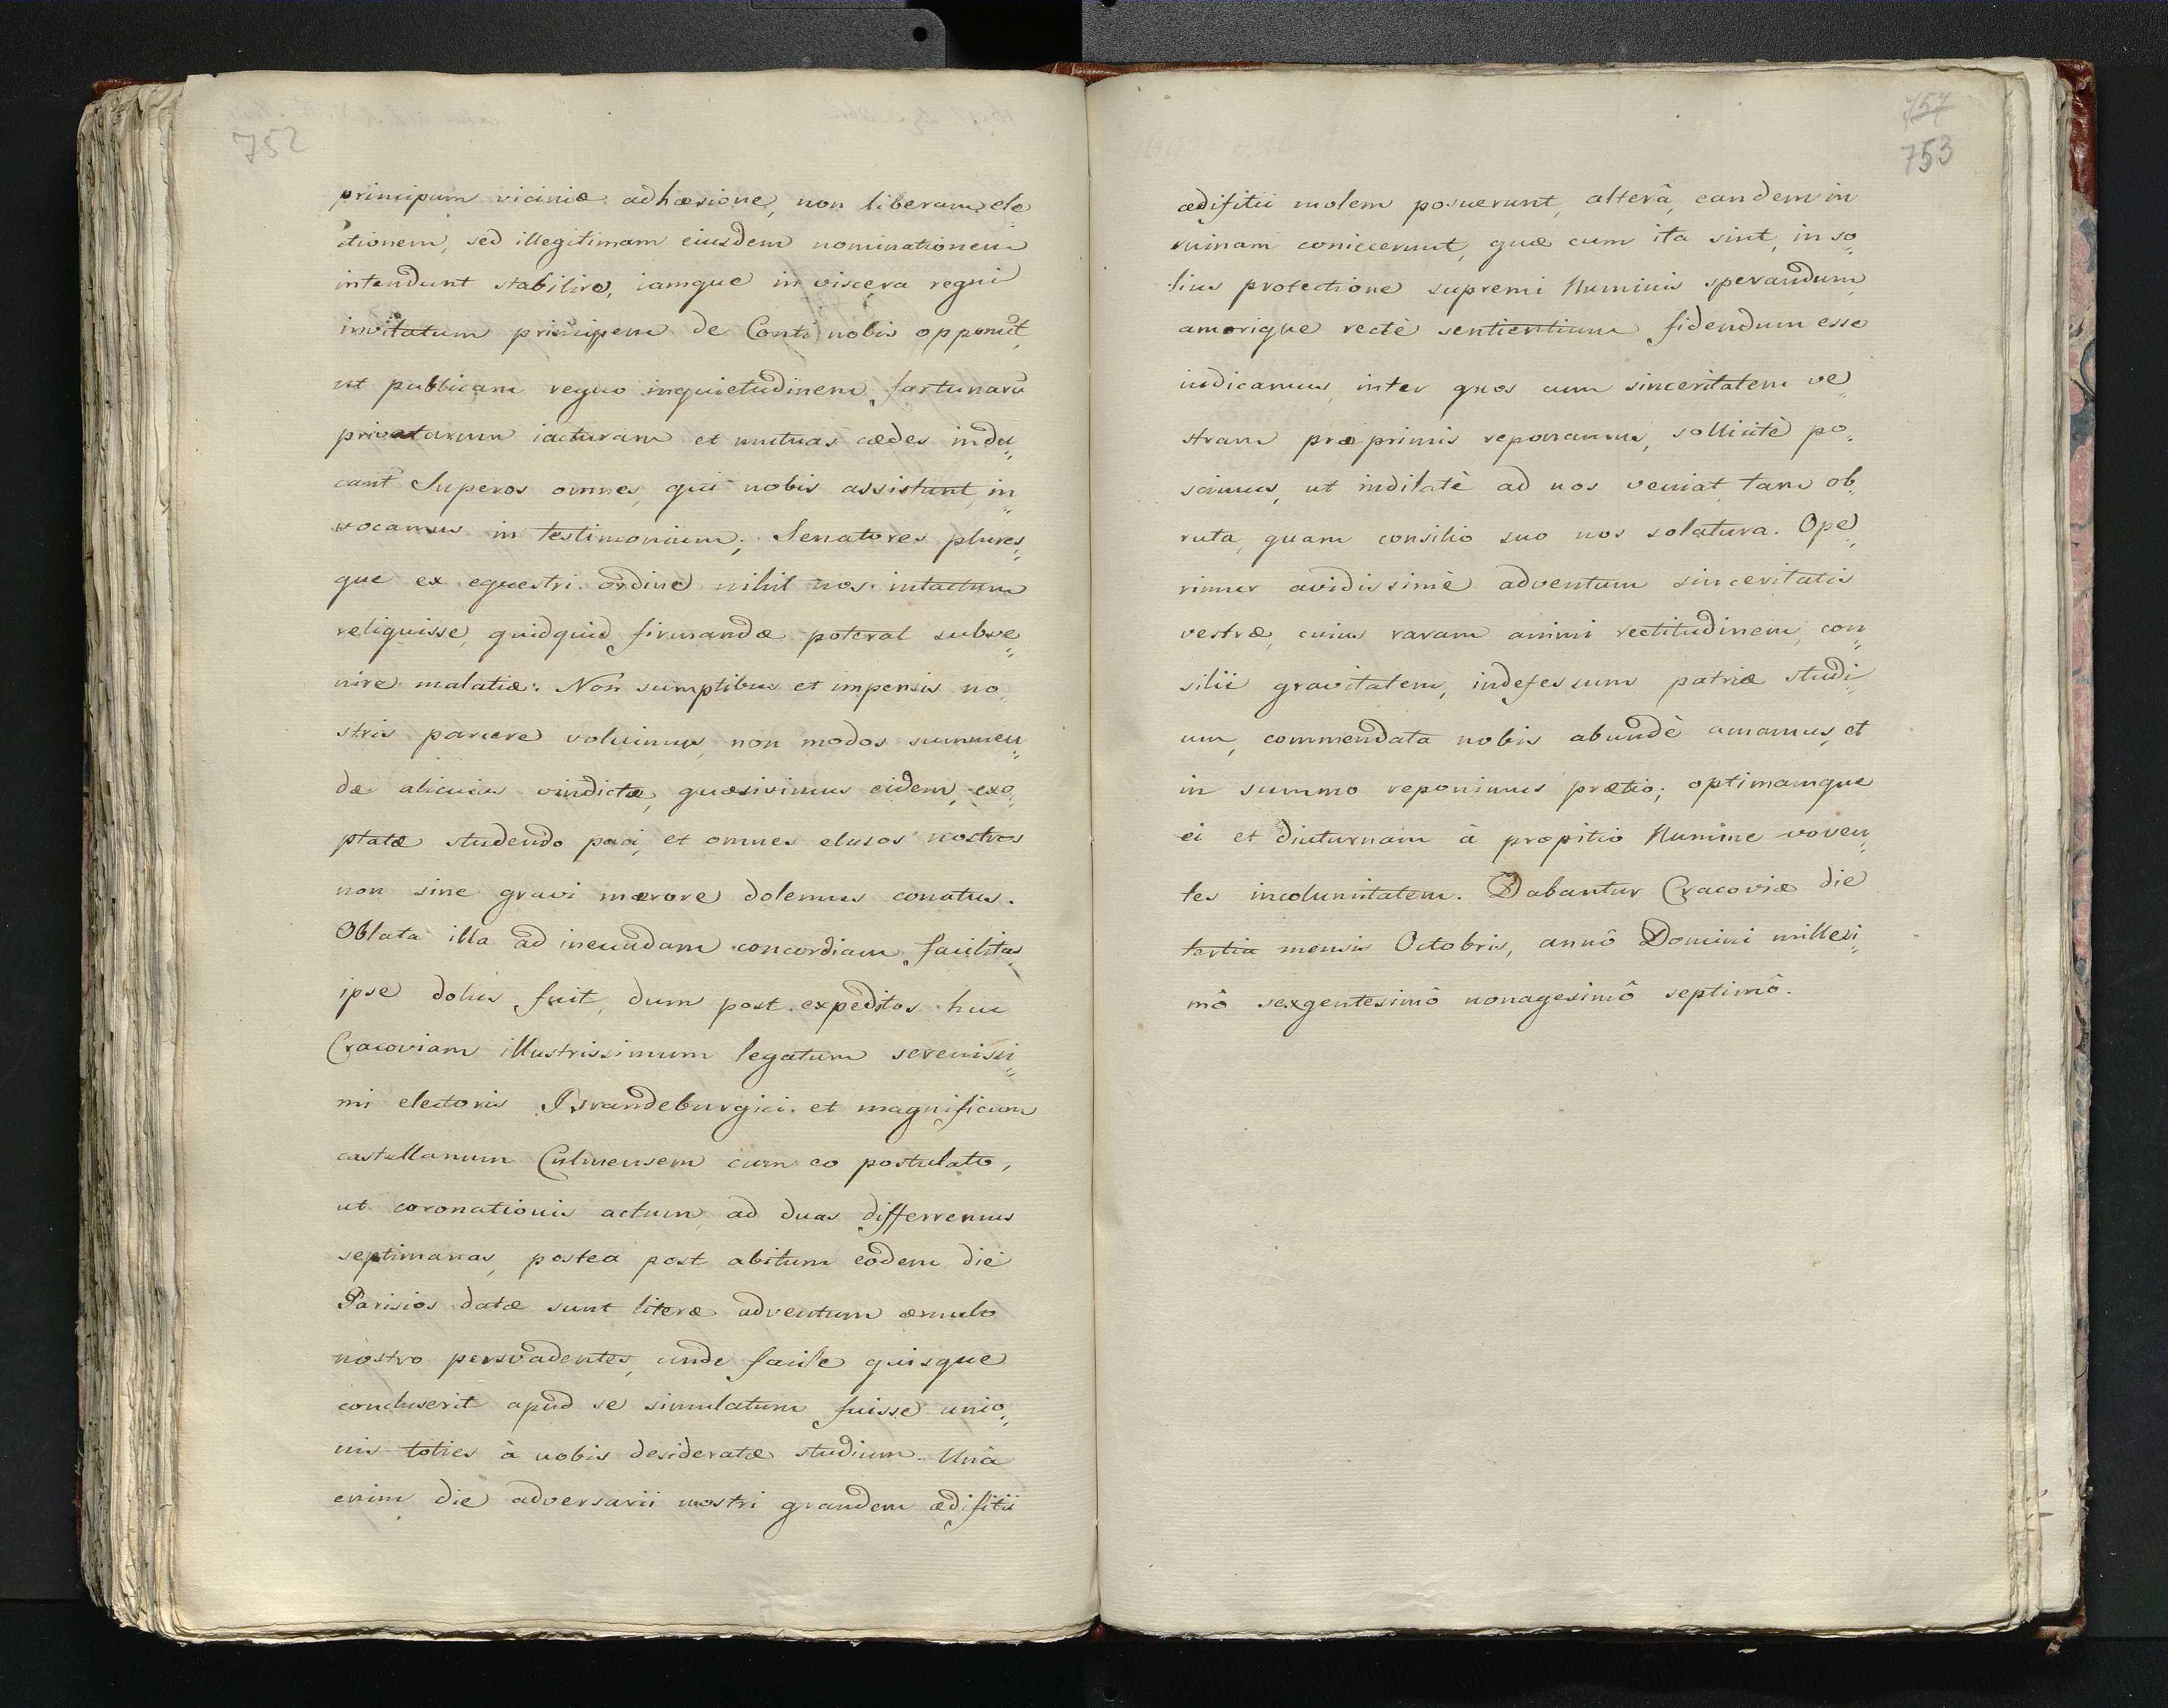 752
principum viciniæ adhæsione, non liberam ele„
ctionem, sed illegitimam eiusdem nominationem
intendunt stabilire, iamque in viscera regni
invitatum principem de Conti nobis opponūt,
ut publicam regno inquietudinem, fortunarū
privatarum iacturam et mutuas cædes indu„
cant Superos omnes, qui nobis assistunt, in„
vocamus in testimonium; Senatores plures„
que ex equestri ordine nihil nos intactum
reliquisse, quidquid firmandæ poterat subve„
nire malatiæ: Non sumptibus et impensis no„
stris parcere voluimus, non modos summen„
dæ alicuius vindictæ, quæsivimus eidem, exo„
ptatæ studendo paci, et omnes elusos nostros
non sine gravi mærore dolemus conatus.
Oblata illa ad ineundam concordiam facilitas„
ipse dolus fuit, dum post expeditos huc
Cracoviam illustrissimum legatum serenissi„
mi electoris Brandeburgici et magnificum
castellanum Culmensem cum eo postulato,
ut coronationis actum, ad duas differremus
septimanas, postea post abitum eodem die
Parisios datæ sunt literæ adventum æmulo
nostro persvadentes, unde facile quisque
concluserit apud se simulatum fuisse unio„
nis toties à nobis desideratæ studium. Unâ
enim die adversarii nostri grandem ædifitii
757
753
ædifitii molem posuerunt, alterâ, eandem in
ruinam coniecerunt, quæ cum ita sint, in so„
lius protectione supremi Numinis sperandum,
amorique rectè sentientium fidendum esse
iudicamus, inter quos cum sinceritatem ve„
stram præprimis reponamus, sollicitè po„
scimus, ut indilatè ad nos veniat, tam ob„
ruta, quam consilio suo nos solatura. Ope„
rimur avidissimè adventum sinceritatis
vestræ, cuius raram animi rectitudinem, con„
silii gravitatem, indefessum patriæ studi„
um, commendata nobis abundè amamus, et
in summo reponimus prætio; optimamque
ei et diuturnam à propitio Numine voven„
tes incolumitatem. Dabantur Cracoviæ die
tertia mensis Octobris, annô Domini millesi„
mô sexgentesimô nonagesimô septimô.